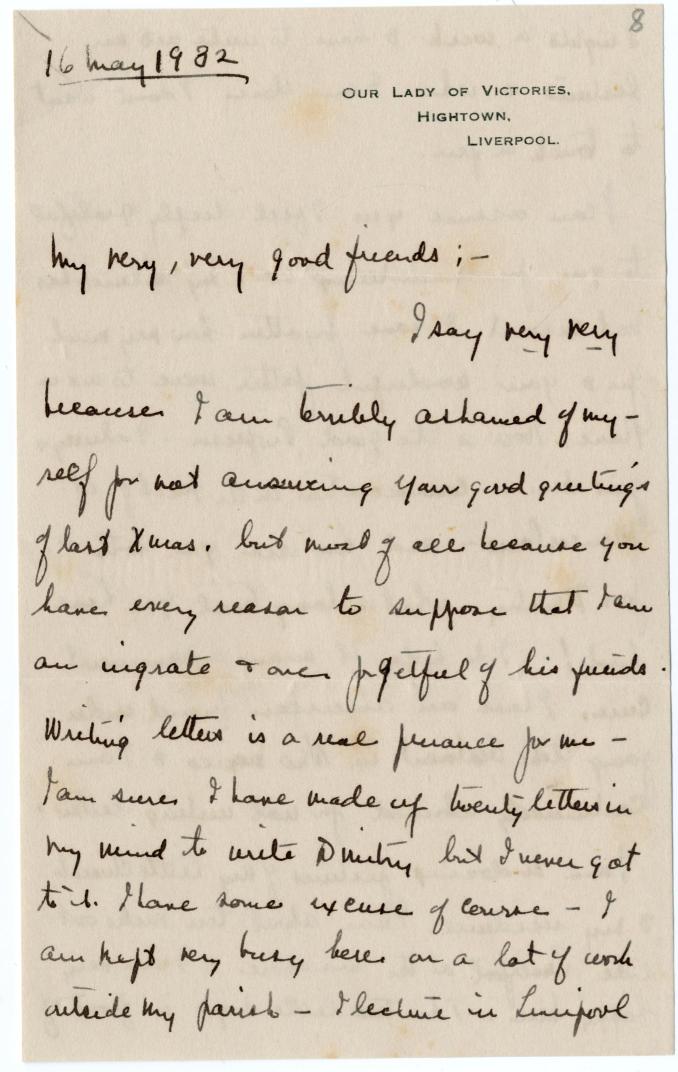 8
16 May 1932
OUR LADY OF VICTORIES,
HIGHTOWN,
LIVERPOOL.
My very, very good friends ; –
I say very very
because I am terribly ashamed of my-
self for not answering your good greetings
of last Xmas. but most of all because you
have every reason to suppose that I am
an ingrate & one forgetful of his friends.
Writing letters is a real penance for me –
I am sure I have made up twenty letters in
my mind to write Dmitry but I never got
to it. I have some excuse of course – I
am kept very busy here on a lot of work
outside my parish – I lecture in Liverpool